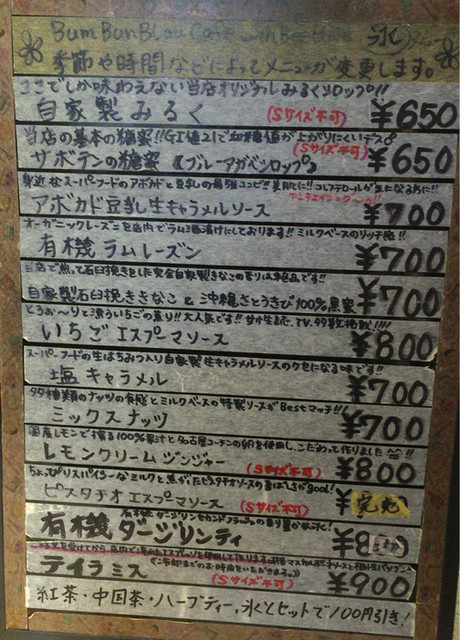 Bum Bun Blau Cafe with BeeHive (氷)
季節や時間などによってメニューが変更します。
ここでしか味わえない当店オリジナルみるくシロップ!!
自家製みるく (Sサイズ不可) ¥650
当店の基本の糖蜜!! GI値21で血糖値が上がりにくいデス
サボテンの糖蜜 《ブルーアガベシロップ》 (Sサイズ不可) ¥650
身近なスーパーフードのアボカドと豆乳の最強コンビ!! 美肌に!! コレステロールが気になる方に!!
アボカド豆乳生キャラメルソース ¥700
オーガニックレーズンを店内でラム酒漬けにしております!! ミルクベースのリッチ感!!
有機ラムレーズン ¥700
当店で煎って石臼挽きをした完全自家製きなこの香りは絶品です!!
自家製石臼挽ききなこ & 沖縄さとうきび100%黒蜜 ¥700
とろぉ〜りと漂ういちごの薫り!! 大人気です!! 雑誌, TV, 多数掲載!!!!
いちごエスプーマソース ¥800
スーパーフードの生はちみつ入り自家製生キャラメルソースのクセになる味です!!
塩キャラメル ¥700
種類のナッツの食感とミルクベースの特製ソースがBestマッチ!!
ミックスナッツ ¥700
国産レモンで搾る100%果汁と名古屋コーチンの卵を使用し、こだわって作りました!!
レモンクリームジンジャー (Sサイズ不可) ¥800
ちょっぴりスパイシーなミルクと焦がしたピスタチオソースの香ばしさがgood!
ピスタチオエスプーマソース (Sサイズ不可) ¥ 完売
有機ダージリンセカンドフラッシュの香り豊かな氷!
有機ダージリンティ ¥800
ティラミス (Sサイズ不可) ¥900
紅茶・中国茶・ハーブティー, 氷とセットで100円引き!